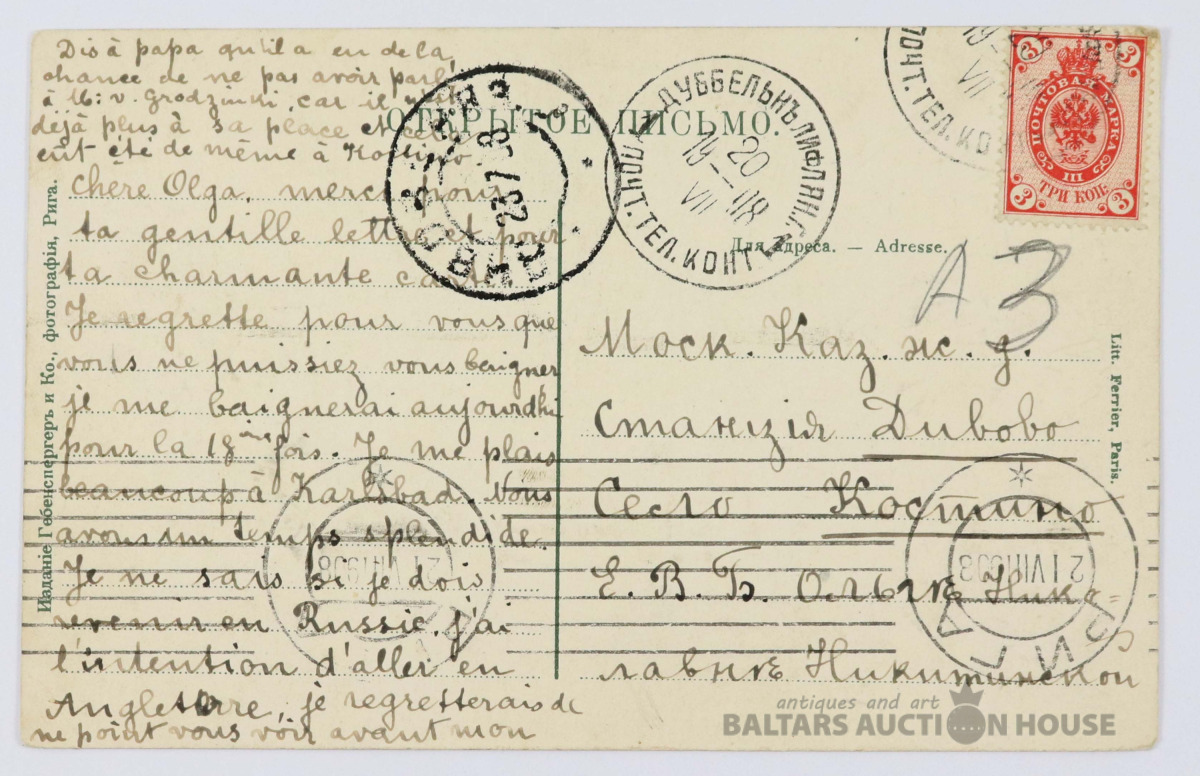 Dis à papa qu'il a eu de la
chance de ne pas avoir parlé
à M: v. Grodzinki, car il n'est
déjà plus à sa place et cel
eut été de même à Kostino
ОТКРЫТОЕ ПИСЬМО.
chère Olga, merci pour
ta gentille lettre et pour
ta charmante carte
Je regrette pour vous que
vous ne puissiez vous baigner
je me baignerai aujourdhi
pour la 18ème fois. Je me plais
beaucoup à Karlsbad. Nous
avons un temps splendide.
Je ne sais si je dois
revenir en Russie, j'ai
l'intention d'aller en
Angleterre, je regretterais de
ne point vous voir avant mon
Изданіе Гебенспергеръ и Ко., фотографія, Рига.
23 7 08
ДУББЕЛЬНЪ ЛИФЛЯН. Г.
ПОЧТ. ТЕЛ. КОНТ.
20
19 – – 08
VII
ПОЧТ. ТЕЛ. КО
19
VII
ПОЧТОВАЯ МАРКА
3 3
III
3 3
ТРИ КОП.
Для адреса. — Adresse.
A 3
Моск. Каз. ж. д.
Станція Дивово
Село Костино
Е. В. Б. Ольгѣ Нико-
лавнѣ Никитинской
Litt. Ferrier, Paris.
21 VII 1908
РИГА
21 VII 1908
antiques and art
BALTARS AUCTION HOUSE